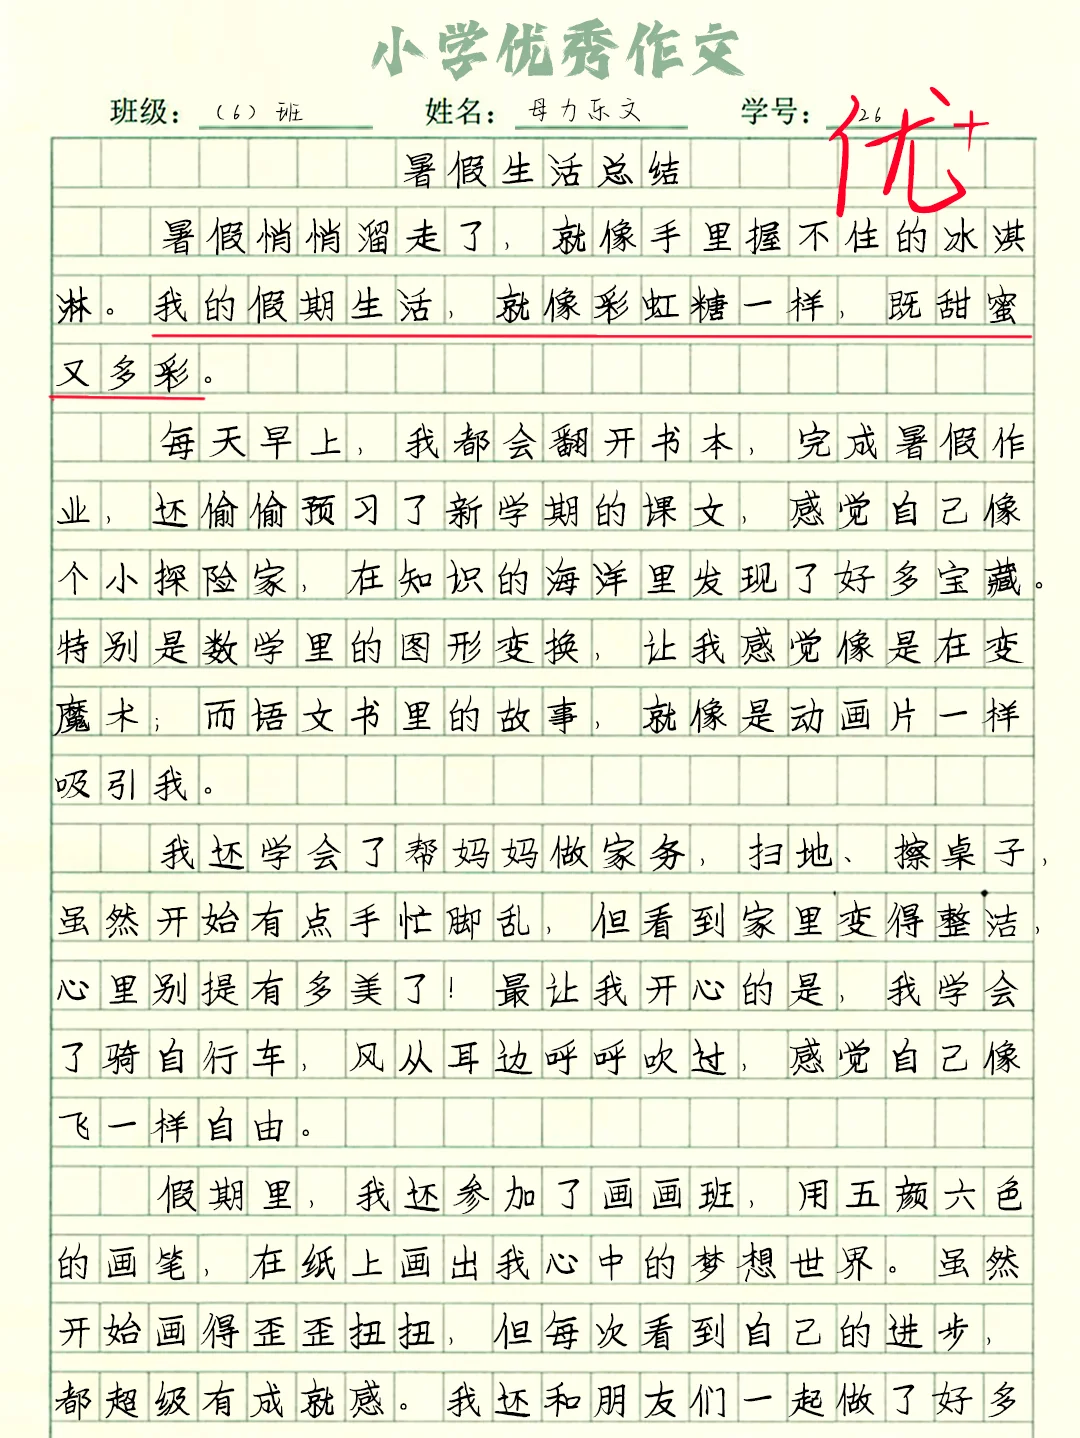 小学优秀作文
班级：（6）班 姓名：母力乐文 学号：26
优+
暑假生活总结
暑假悄悄溜走了，就像手里握不住的冰淇
淋。我的假期生活，就像彩虹糖一样，既甜蜜
又多彩。
每天早上，我都会翻开书本，完成暑假作
业，还偷偷预习了新学期的课文，感觉自己像
个小探险家，在知识的海洋里发现了好多宝藏。
特别是数学里的图形变换，让我感觉像是在变
魔术；而语文书里的故事，就像是动画片一样
吸引我。
我还学会了帮妈妈做家务，扫地、擦桌子，
虽然开始有点手忙脚乱，但看到家里变得整洁，
心里别提有多美了！最让我开心的是，我学会
了骑自行车，风从耳边呼呼吹过，感觉自己像
飞一样自由。
假期里，我还参加了画画班，用五颜六色
的画笔，在纸上画出我心中的梦想世界。虽然
开始画得歪歪扭扭，但每次看到自己的进步，
都超级有成就感。我还和朋友们一起做了好多